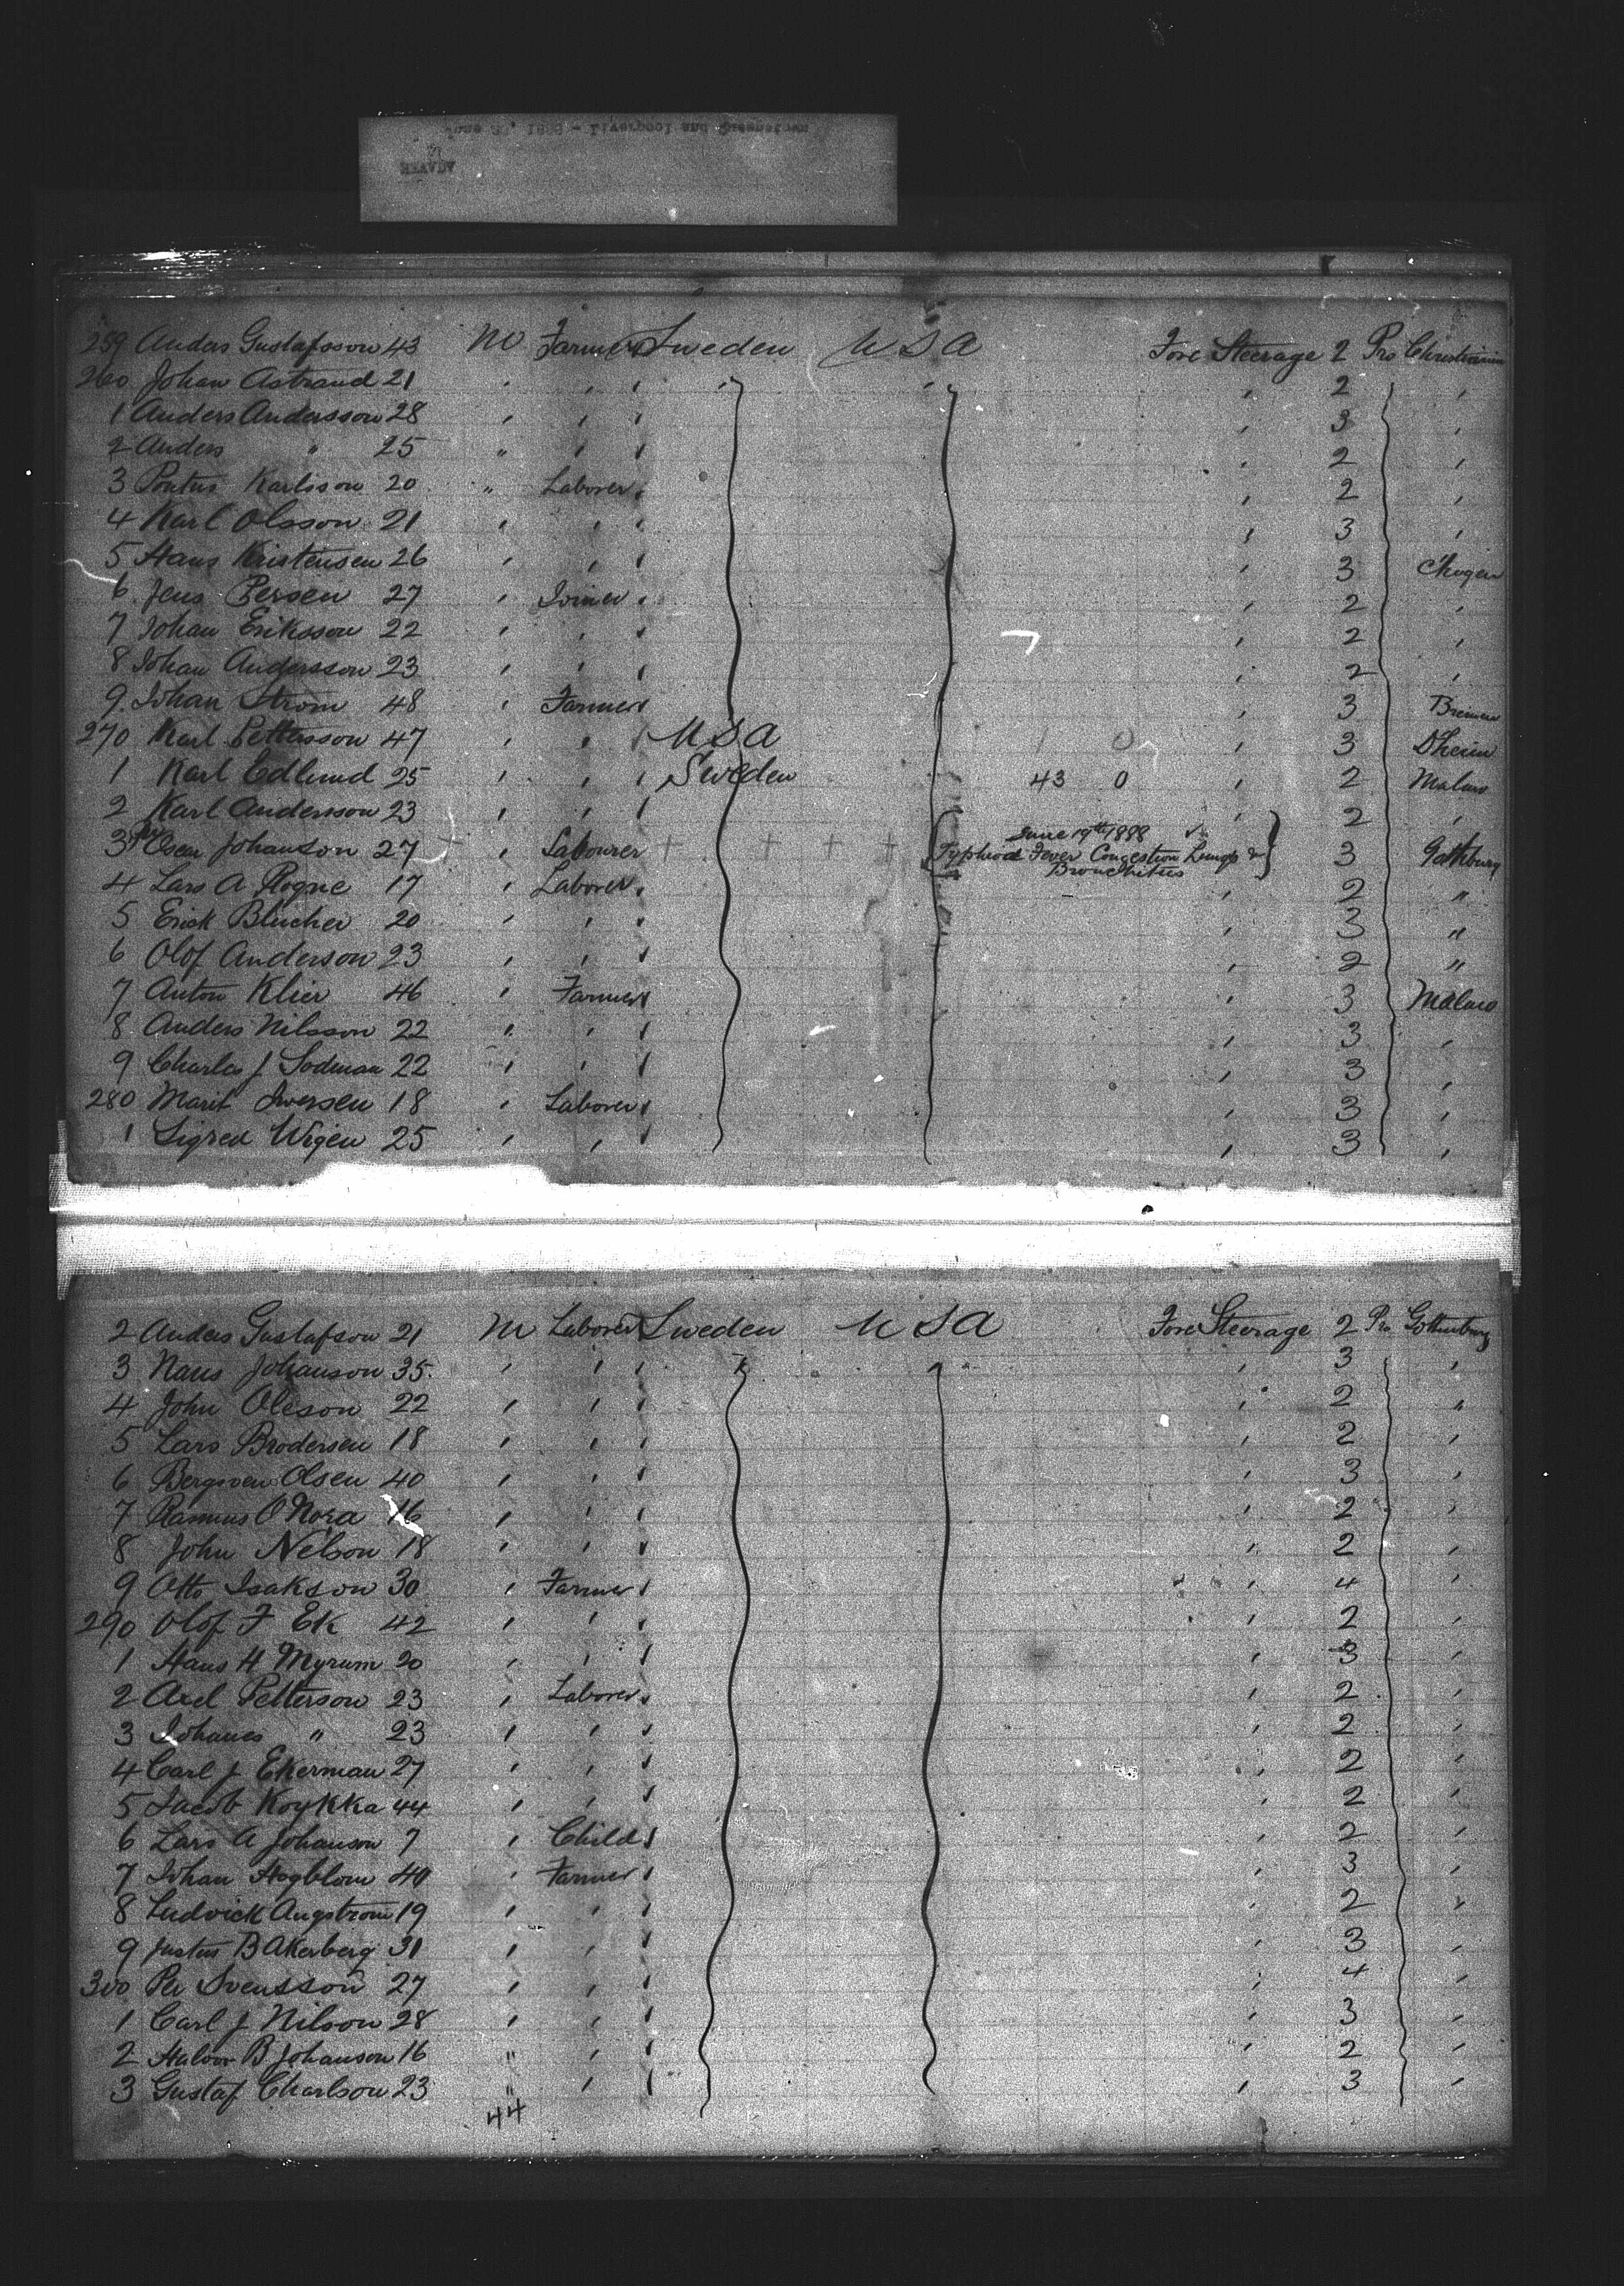 June 25, 1888 - Liverpool and Queenstown
NEVADA
259 Andas Gustafsson 43 M Farmer Sweden U S A Fore Steerage 2 Pro Christiania
260 Johan Astrand 21 " " " " 2 "
1 Anders Andersson 28 " " " " 3 "
2 Anders " 25 " " " " 2 "
3 Pontus Karlsson 20 " Laborer " " 2 "
4 Karl Olsson 21 " " " " 3 "
5 Hans Kristensen 26 " " " " 3 C'hagen
6 Jens Persen 27 " Joiner " " 2 "
7 Johan Eriksson 22 " " " " 2 "
8 Johan Andersson 23 " " " " 2 "
9 Johan Strom 48 " Farmer " " 3 Bremen
270 Karl Pettersson 47 " " " U S A " 3 D'heim
1 Karl Edlund 25 " " " Sweden 43 0 " 2 Malmo
2 Karl Andersson 23 " " " " 2 "
3 Oscar Johanson 27 + " Labourer + + + + + June 19th 1888 Typhoid Fever Congestion Lungs & Bronchitus 3 Gothburg
4 Lars A Rogne 17 " Laborer " " 2 "
5 Erick Blucher 20 " " " " 3 "
6 Olof Anderson 23 " " " " 2 "
7 Anton Klier 46 " Farmer " " 3 Malmo
8 Anders Nilsson 22 " " " " 3 "
9 Charles J Sodman 22 " " " " 3 "
280 Marit Iversen 18 " Laborer " " 3 "
1 Sigred Wigen 25 " " " " 3 "
2 Anders Gustafson 21 M Laborer Sweden U S A Fore Steerage 2 Pro Gothenburg
3 Hans Johanson 35 " " " " 3 "
4 John Oleson 22 " " " " 2 "
5 Lars Brodersen 18 " " " " 2 "
6 Bergsven Olsen 40 " " " " 3 "
7 Rasmus O Nora 16 " " " " 2 "
8 John Nelson 18 " " " " 2 "
9 Otto Isakson 30 " Farmer " " 4 "
290 Olof F Ek 42 " " " " 2 "
1 Hans H Myrum 20 " " " " 3 "
2 Axel Petterson 23 " Laborer " " 2 "
3 Johanes " 23 " " " " 2 "
4 Carl J Ekerman 27 " " " " 2 "
5 Jacob Koykka 44 " " " " 2 "
6 Lars A Johanson 7 " Child " " 2 "
7 Johan Hogblom 40 " Farmer " " 3 "
8 Ludvick Angstrom 19 " " " " 2 "
9 Justus B Akerberg 31 " " " " 3 "
300 Per Svensson 27 " " " " 4 "
1 Carl J Nilson 28 " " " " 3 "
2 Halvor B Johanson 16 " " " " 2 "
3 Gustaf Charlson 23 " " " " 3 "
44